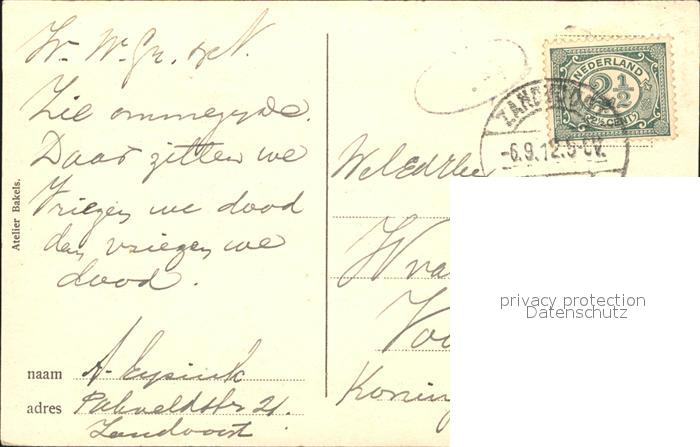 W. W. Gr. & N.
Zie ommezijde.
Daar zitten we
Vriezen we dood
dan vriezen we
dood.
Atelier Bakels.
naam A. Eysink
adres Pakveldstr 21.
Zandvoort.
NEDERLAND
2 1/2
2½ CENT
ZANDVOORT
-6.9.12.5-6V.
WelEdele
privacy protection
Datenschutz